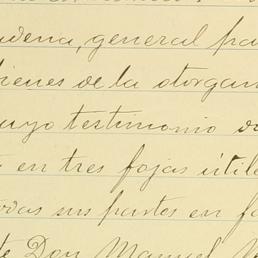 adena, general pa
bienes de la otorgan
cuyo testimonio
en tres fojas útile
odas sus partes en fa
te Don Manuel